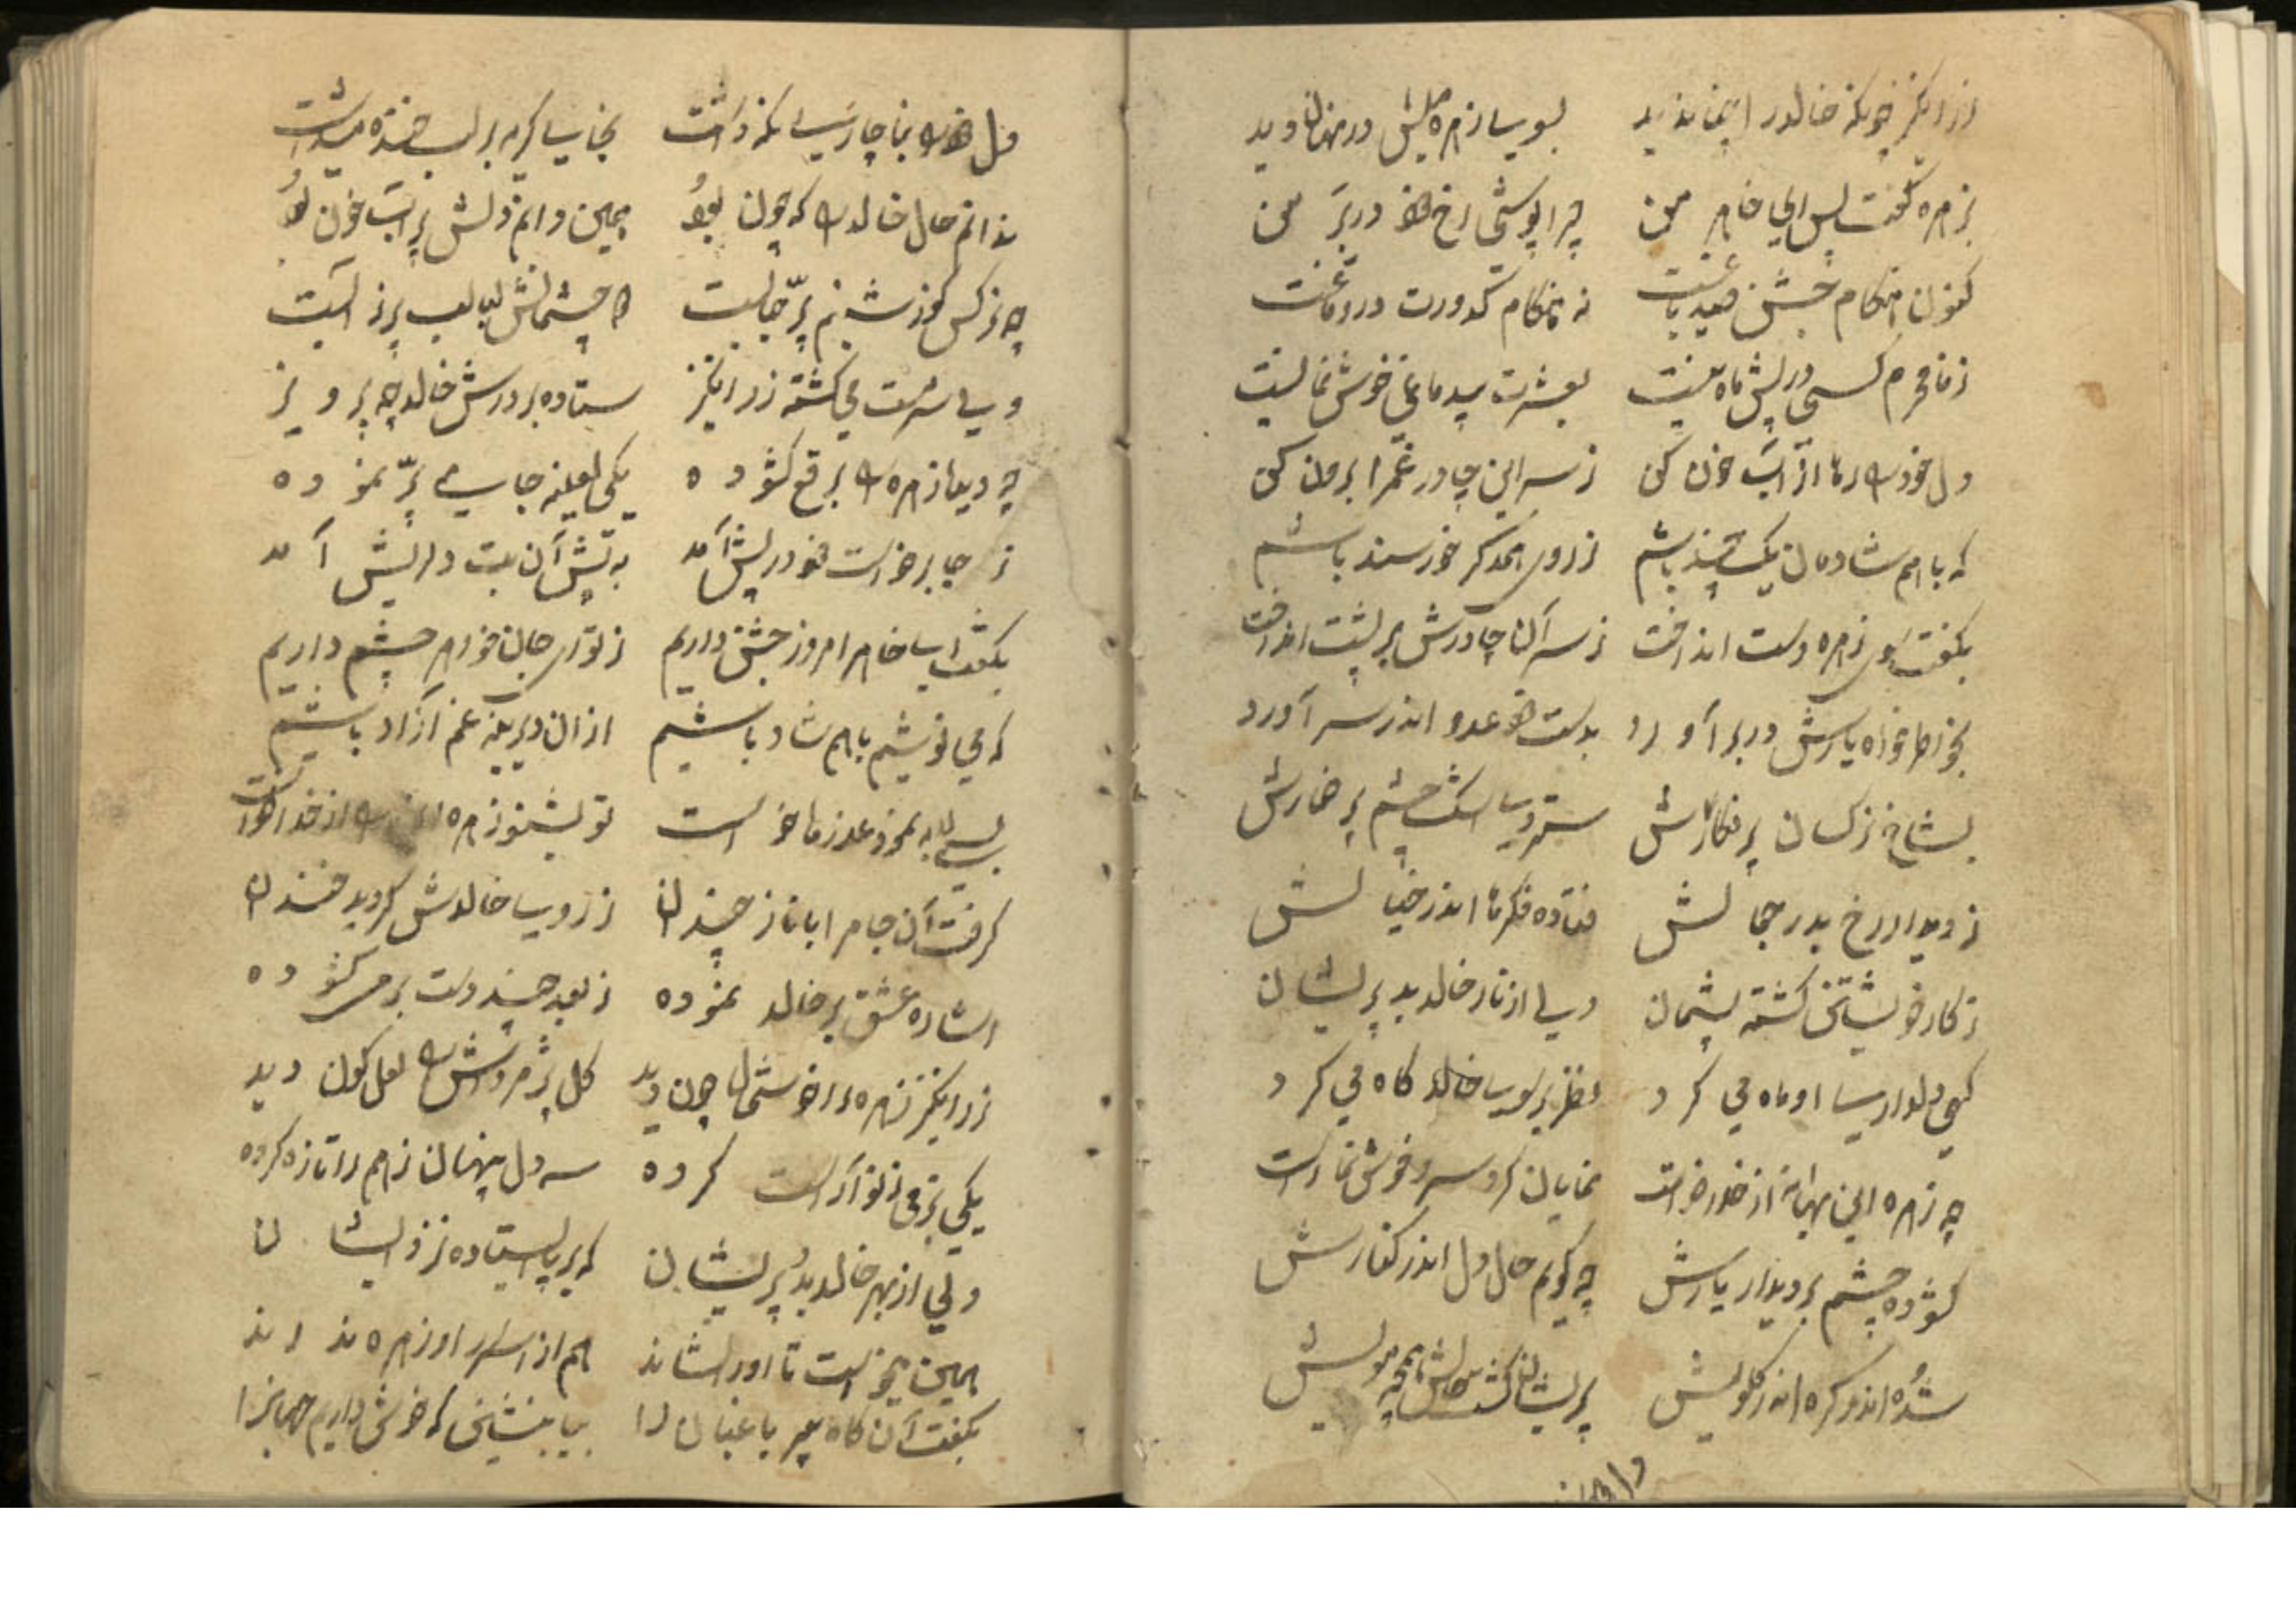 زرانگیز چونکه خالد را چنان دید بسوی زهره میلش در نهان دید
بزهره گفت پس ای خواهر من چرا پوشی رخ خود در بر من
کنون هنگام جشن عید باغت نه هنگام کدورت در دماغت
ز نامحرم کسی در پیش ما نیست بعشرت بیدماغی خوش نما نیست
دل خود را رها از آب خون کن ز سر این چادر غم را برون کن
که با هم شادمان یک چند باشیم ز روی همدگر خورسند باشیم
بگفت و سوی زهره دست انداخت ز سر آن چادرش بر پشت انداخت
بخاطر خواه یارش در بر آورد بدست خود عدو اندر سر آورد
بشاخ نرکسان پر نکارش ستردی اشک چشم پر خمارش
ز دیدار رخ بدر جمالش فتاده فکرها اندر خیالش
ز کار خویشتن کشته پشیمان ولی از کار خالد بد پریشان
کهی دلداری او ماه می کرد نظر بر سوی خالد کاه می کرد
چه زهره این بهانه از خدا خواست نمایان کرد سرو خوش نما راست
کشوده چشم بر دیدار یارش چه گویم حال دل اندر کنارش
شده اندو گره اندر گلویش پریشان گشت حالش همچه مویش
دل خود را بناچاری نکه داشت بجای گریه بر لب خنده میداشت
ندانم حال خالد را که چون بود همین دانم دلش پر آب خون بود
چه نرکس کوز شبنم پر حبابست دو چشمانش لبالب پر ز آبست
ولی سرمست می کشته زرانگیز ستاده بر درش خالد چه پرویز
چه دید از زهره را برقع کشوده یکی لعلینه جامی پر نموده
ز جا برخواست خود در پیش آمد به پیش آن بت دلریش آمد
بگفت ای خواهر امروز جشن داریم ز تو ای جان خواهر چشم داریم
که می نوشیم با هم شاد باشیم از آن دیرینه غم آزاد باشیم
بسی لابه نمود و عذر ما خواست تو بشنو زهره از خدا خواست
گرفت آن جام را با ناز چندان ز روی خالدش گردید خندان
اشاره عشق بر خالد نموده ز بعد چند دست بر می کشوده
زرانگیز زهره را خوشحال چون دید کل پژمرده‌اش را لعل کون دید
یکی بزمی ز نو آراست کرده سه دل پنهان ز هم را تازه کرده
ولی از بهر خالد بد پریشان که بر پا ایستاده نزد ایشان
همین میخواست تا او را نشاند هم از اسرار او زهره نداند
بگفت آن گاه میر باغبان را بیا بنشین که خوش داریم